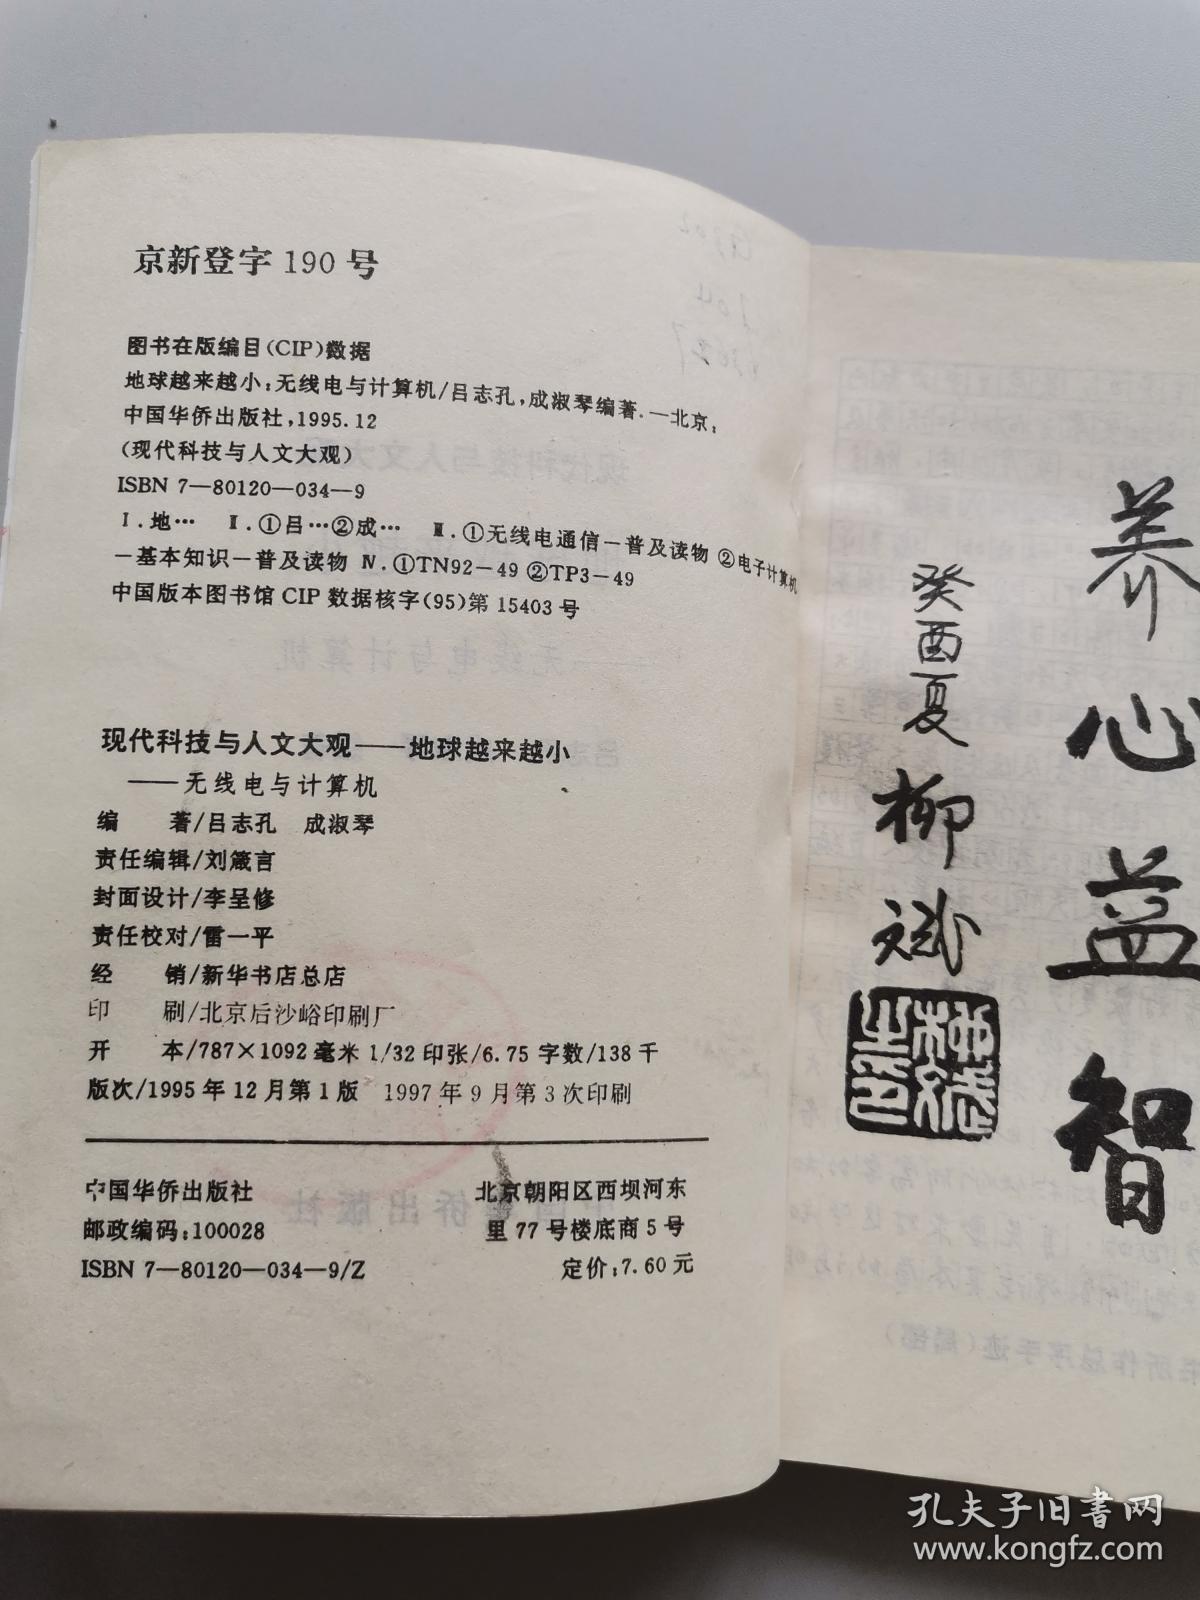 京新登字190号
图书在版编目(CIP)数据
地球越来越小:无线电与计算机/吕志孔,成淑琴编著.—北京:
中国华侨出版社,1995.12
(现代科技与人文大观)
ISBN 7—80120—034—9
Ⅰ.地… Ⅱ.①吕…②成… Ⅲ.①无线电通信－普及读物 ②电子计算机
－基本知识－普及读物 Ⅳ.①TN92－49 ②TP3－49
中国版本图书馆CIP数据核字(95)第15403号
现代科技与人文大观——地球越来越小
——无线电与计算机
编 著/吕志孔 成淑琴
责任编辑/刘箴言
封面设计/李呈修
责任校对/雷一平
经 销/新华书店总店
印 刷/北京后沙峪印刷厂
开 本/787×1092毫米 1/32印张/6.75 字数/138千
版次/1995年12月第1版 1997年9月第3次印刷
中国华侨出版社
邮政编码:100028
ISBN 7—80120—034—9/Z
北京朝阳区西坝河东
里77号楼底商5号
定价:7.60元
养心益智
癸酉夏
柳斌
孔夫子旧书网
www.kongfz.com